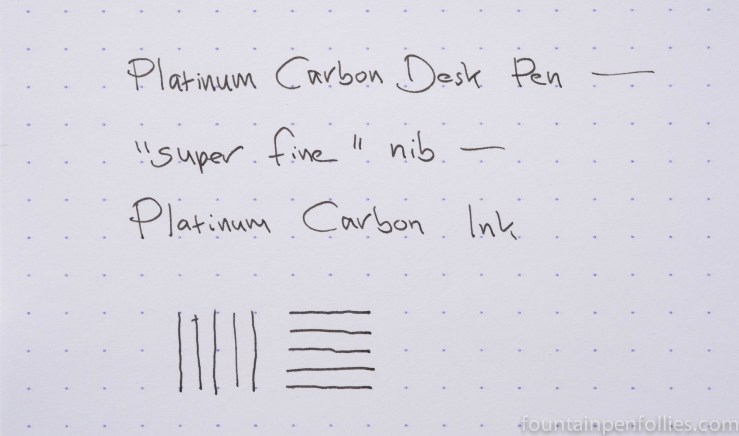 Platinum Carbon Desk Pen —
"super fine" nib —
Platinum Carbon Ink
fountainpenfollies.com